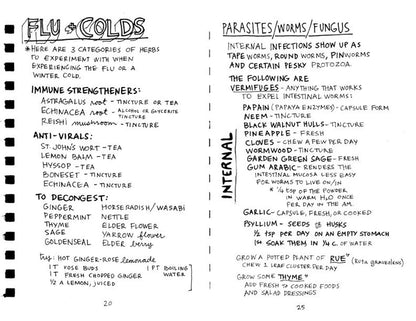 FLU & COLDS
*HERE ARE 3 CATEGORIES OF HERBS
TO EXPERIMENT WITH WHEN
EXPERIENCING THE FLU OR A
WINTER COLD.
IMMUNE STRENGTHENERS:
ASTRAGALUS root - TINCTURE OR TEA
ECHINACEA root - ALCOHOL OR GLYCERITE
TINCTURE
REISHI mushroom - TINCTURE
ANTI-VIRALS:
ST. JOHN'S WORT - TEA
LEMON BALM - TEA
HYSSOP - TEA
BONESET - TINCTURE
ECHINACEA - TINCTURE
TO DECONGEST:
GINGER HORSERADISH/WASABI
PEPPERMINT NETTLE
THYME ELDER FLOWER
SAGE YARROW flower
GOLDENSEAL ELDER berry
try: HOT GINGER-ROSE lemonade
1 T ROSE BUDS
1 T FRESH CHOPPED GINGER
1/2 A LEMON, JUICED
1 PT BOILING
WATER
20
PARASITES/WORMS/FUNGUS
INTERNAL INFECTIONS SHOW UP AS
TAPE WORMS, ROUND WORMS, PINWORMS
AND CERTAIN PESKY PROTOZOA
THE FOLLOWING ARE
VERMIFUGES - ANYTHING THAT WORKS
TO EXPEL INTESTINAL WORMS:
INTERNAL
PAPAIN (PAPAYA ENZYMES) - CAPSULE FORM
NEEM - TINCTURE
BLACK WALNUT HULLS - TINCTURE
PINEAPPLE - FRESH
CLOVES - CHEW A FEW PER DAY
WORMWOOD - TINCTURE
GARDEN GREEN SAGE - FRESH
GUM ARABIC - RENDERS THE
INTESTINAL MUCOSA LESS EASY
FOR WORMS TO LIVE ON/IN
* 1/4 tsp OF THE POWDER
IN WARM H2O ONCE
PER DAY IN THE AM.
GARLIC - CAPSULE, FRESH, OR COOKED
PSYLLIUM - SEEDS or HUSKS
1/2 tsp PER DAY ON AN EMPTY STOMACH
SOAK THEM IN 1/4 C. OF WATER
GROW A POTTED PLANT OF "RUE" (Ruta graveolens)
CHEW 1 LEAF CLUSTER PER DAY
GROW SOME "THYME"
ADD FRESH TO COOKED FOODS
AND SALAD DRESSINGS
25